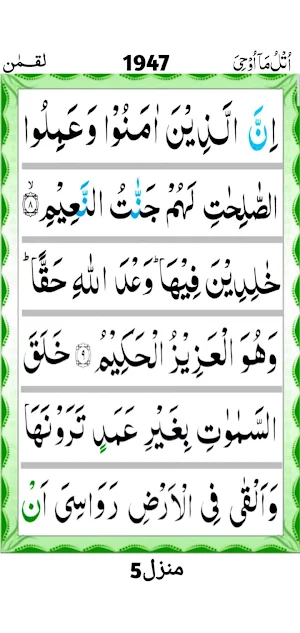 اُتْلُ مَاۤ اُوْحِیَ 1947 لقمٰن
اِنَّ الَّذِیْنَ اٰمَنُوْا وَ عَمِلُوا
الصّٰلِحٰتِ لَهُمْ جَنّٰتُ النَّعِیْمِ ۙ﴿۸﴾
خٰلِدِیْنَ فِیْهَا ؕ وَعْدَ اللّٰهِ حَقًّا ؕ
وَهُوَ الْعَزِیْزُ الْحَكِیْمُ ﴿۹﴾ خَلَقَ
السَّمٰوٰتِ بِغَیْرِ عَمَدٍ تَرَوْنَهَا
وَ اَلْقٰی فِی الْاَرْضِ رَوَاسِیَ اَنْ
منزل5